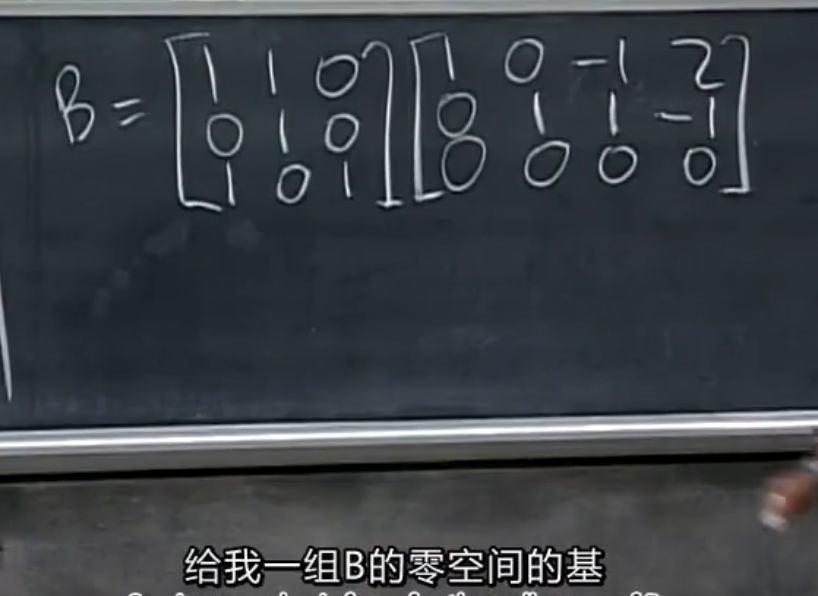 B = [1 1 0] [1 0 -1 2]
[0 1 0] [0 1 1 -1]
[1 0 1] [0 0 0 0]
给我一组B的零空间的基